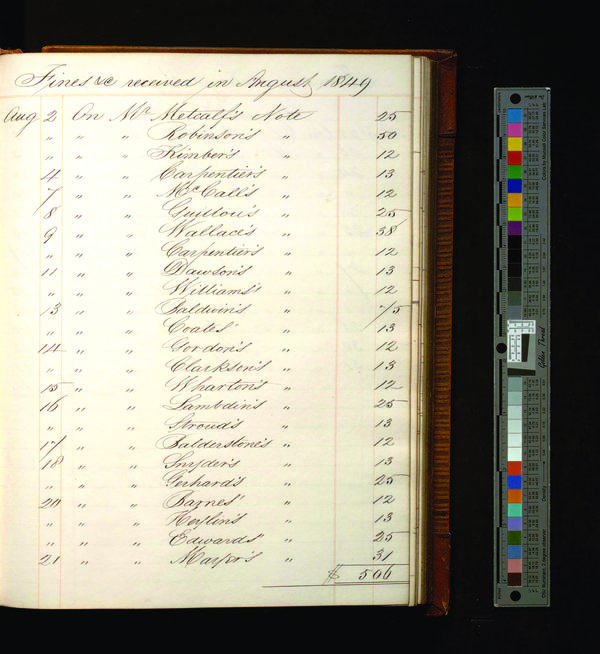 Fines &c received in August 1849
Aug 2 On Mr Metcalf's Note 25
" " " Robinson's " 50
" " " Kimber's " 12
4 " " Carpentier's " 13
7 " " McCall's " 12
8 " " Guillou's " 25
9 " " Wallace's " 38
" " " Carpentier's " 12
11 " " Dawson's " 13
" " " Williams' " 12
13 " " Baldwin's " 75
" " " Coates' " 13
14 " " Gordon's " 12
" " " Clarkson's " 13
15 " " Wharton's " 12
16 " " Lambdin's " 25
" " " Stroud's " 13
17 " " Balderstone's " 12
18 " " Snyder's " 13
" " " Gerhard's " 25
20 " " Barnes' " 12
" " " Heylin's " 13
" " " Edwards' " 25
21 " " " 31
$ 506